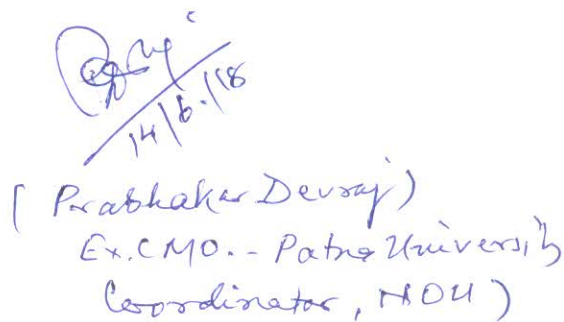 14/6/18
( Prabhakar Devraj )
Ex. CMO. - Patna University
Coordinator, NOU )